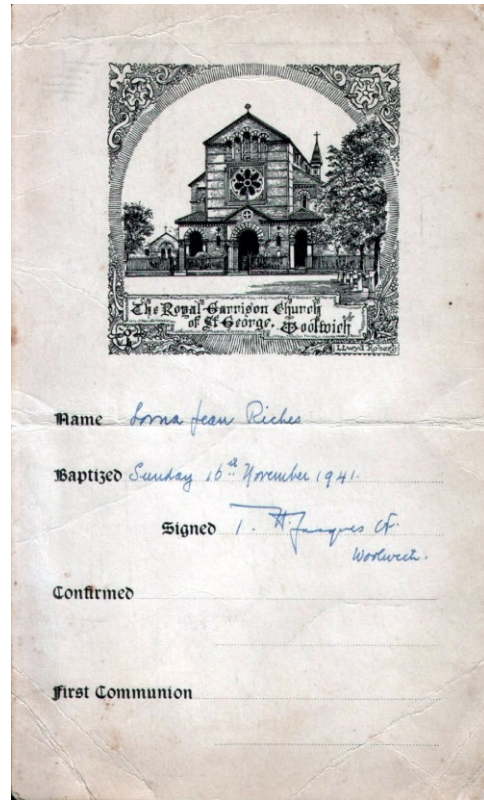 The Royal Garrison Church
of St George. Woolwich
Llwyd Roberts
Name Lorna Jean Riches
Baptized Sunday 16th November 1941.
Signed T. H. Jacques CF.
Woolwich.
Confirmed
First Communion